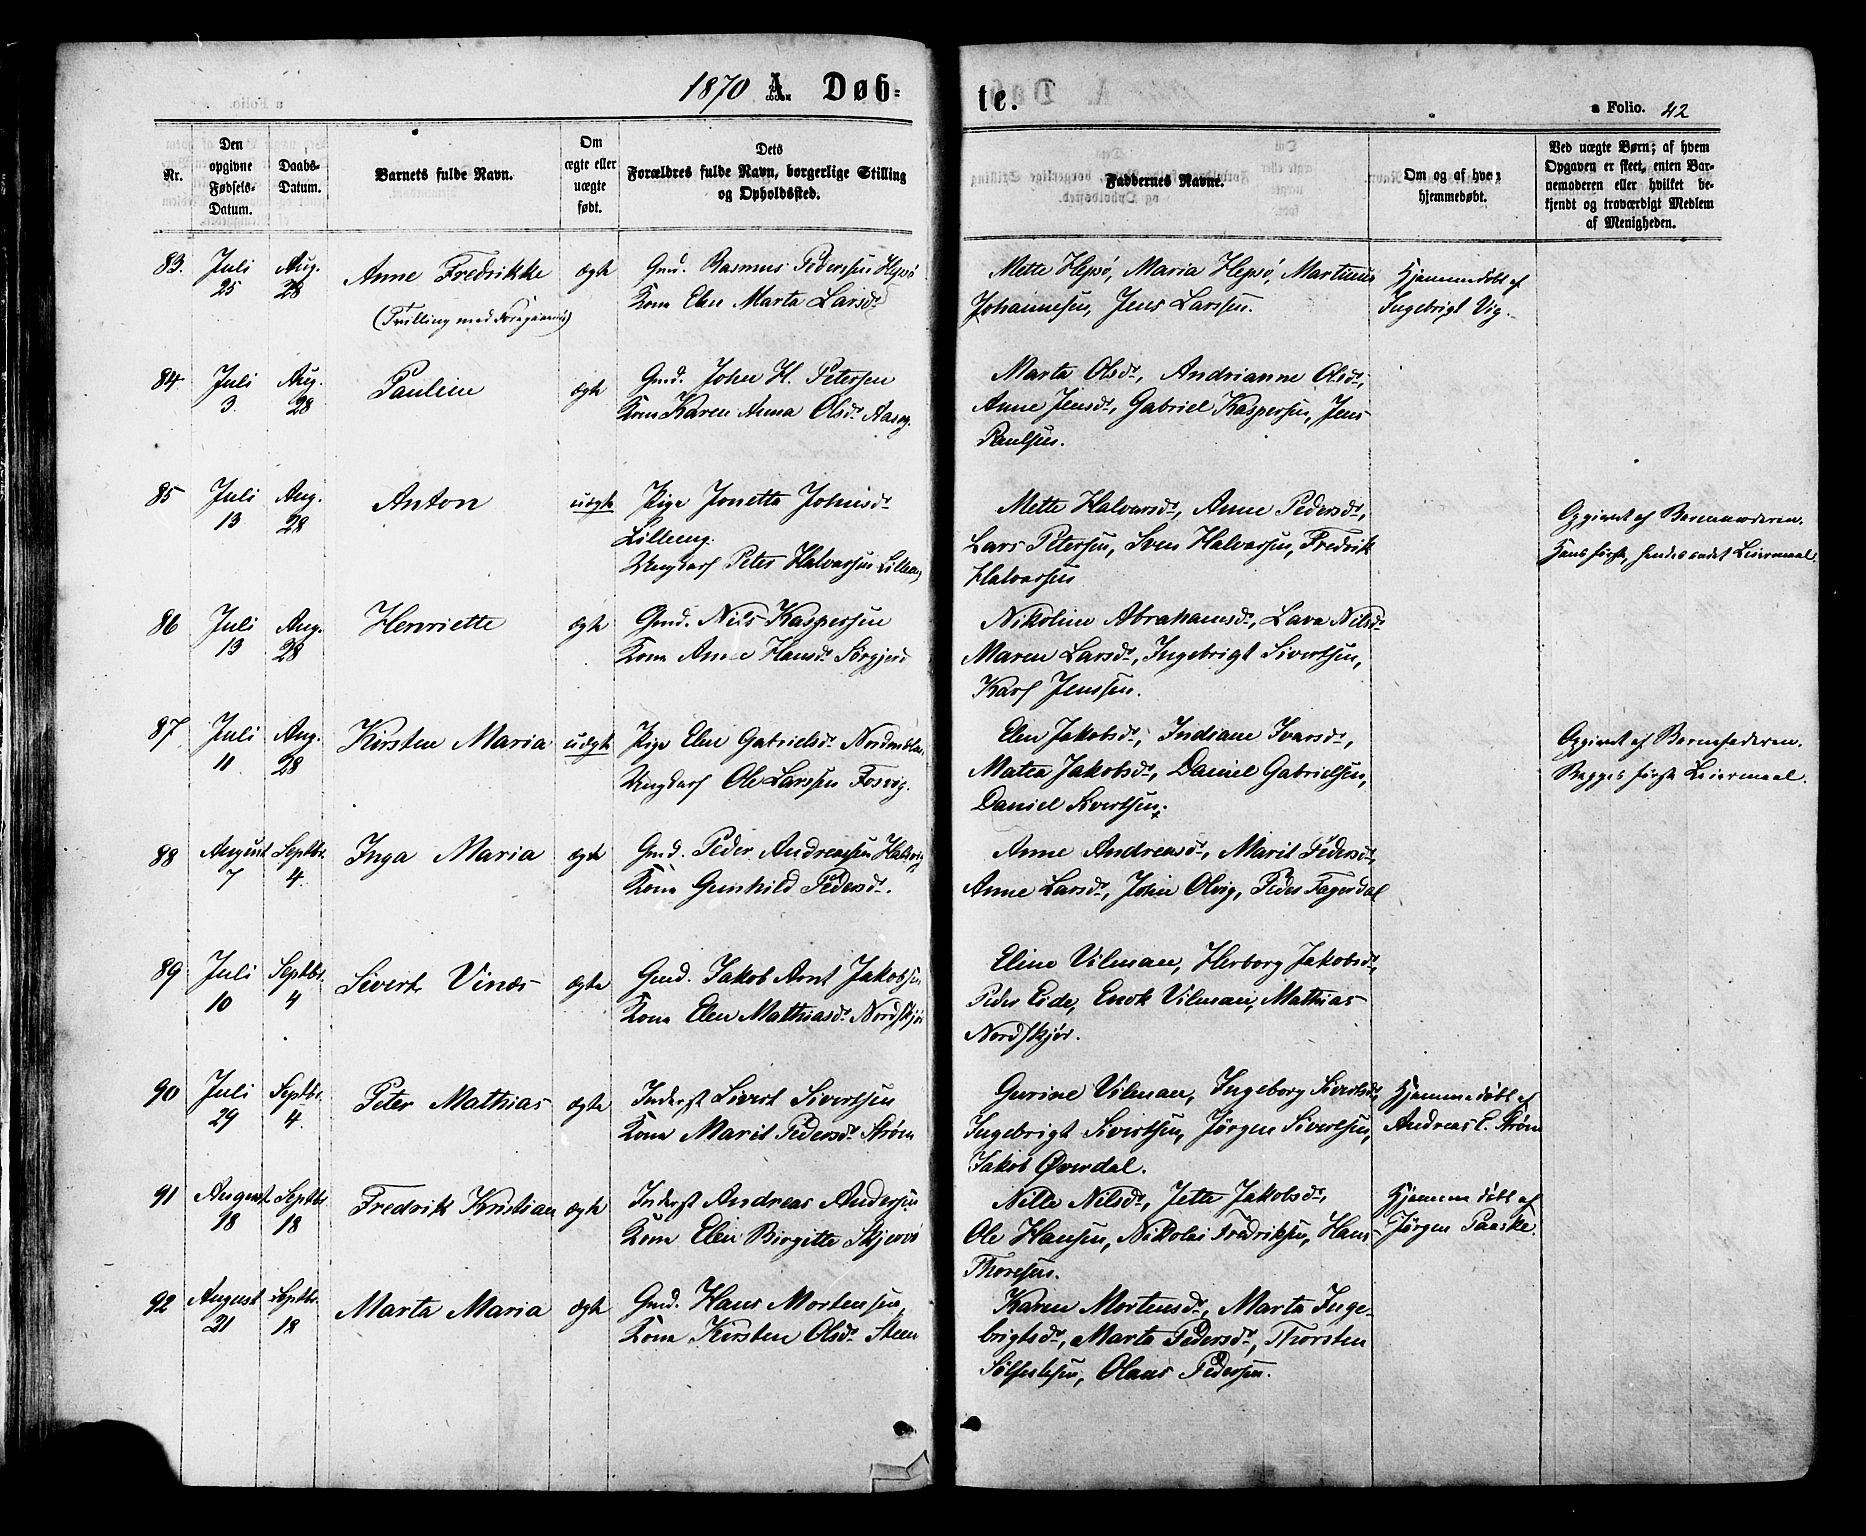 1870 A. Døb-
te.
a Folio. 42
Nr.
Den
opgivne
Fødsels-
Datum.
Daabs-
Datum.
Barnets fulde Navn.
Om
ægte eller
uægte
født.
Dets
Forældres fulde Navn, borgerlige Stilling
og Opholdssted.
Faddernes Navne.
Om og af hvem
hjemmedøbt.
Ved uægte Børn; af hvem
Opgaven er skeet, enten Bar-
nemoderen eller hvilket be-
kjendt og troværdigt Medlem
af Menigheden.
83. Juli 25 Aug. 28 Anne Fredrikke ægte
(Tvilling med Foregaaende)
Gmd. Rasmus Pedersen Hepsø
Kone Elen Marta Larsdr
Mette Hepsø, Maria Hepsø, Martinus
Johannesen, Jens Larssen.
Hjemmedøbt af
Ingebrigt Vig.
84 Juli 3. Aug. 28 Pauline ægte
Gmd. John H. Petersen
Kone Karen Anna Olsdr Aaseg.
Marta Olsdr, Andrianne Olsdr,
Anne Jensdr, Gabriel Kaspersen, Jens
Paulsen.
85 Juli 13 Aug. 28 Anton uægte
Pige Jonetta Johnsdr
Lilleeng.
Ungkarl Peter Halvarsen Lilleeng
Mette Halvarsdr, Anne Pedersdr,
Lars Petersen, Sven Halvarsen, Fredrik
Halvarsen
Opgivet af Barnemoderen.
Hans første, hendes andet Leiermaal.
86 Juli 13 Aug. 28 Henriette ægte
Gmd. Nils Kaspersen
Kone Anne Hansdr Sørgjerd
Nikoline Abrahamsdr, Lava Nilsdr
Maren Larsdr, Ingebrigt Sivertsen,
Karl Jenssen.
87 Juli 11 Aug. 28 Kirsten Maria uægte
Pige Elen Gabrielsdr
Ungkarl Ole Larssen Fosvig.
Elen Jakobsdr, Indiane Ivarsdr,
Matea Jakobsdr, Daniel Gabrielsen,
Daniel Sivertsen.
Opgivet af Barnefaderen.
Begges første Leiermaal.
88 August 7 Septbr. 4. Inga Maria ægte
Gmd. Peder Andreassen
Kone Gunhild Pedersdr.
Anne Andreasdr, Marit Pedersdr,
Anne Larsdr, John Olvig, Peder Fagerdal
89 Juli 10 Septbr. 4 Sivert Vinæs ægte
Gmd. Jakob Arnt Jakobsen
Kone Elen Mathiasdr Nordskjør
Eline Vilman, Herborg Jakobsdr,
Peder Eide, Enok Vilman, Mathias
Nordskjør.
90 Juli 29 Septbr. 4. Peter Mathias ægte
Inderst Sivert Sivertsen
Kone Marit Pedersdr Strøm
Gurine Vilman, Ingeborg Sivertsdr,
Ingebrigt Sivertsen, Jørgen Sivertsen,
Jakob Øverdal.
Hjemmedøbt af
Andreas C. Strøm
91 August 18 Septbr. 18 Fredrik Kristian ægte
Inderst Andreas Andersen
Kone Elen Birgitte Skjervø
Nille Nilsdr, Jette Jakobsdr,
Ole Hansen, Nikolai Fredriksen, Hans
Thoresen.
Hjemmedøbt af
Jørgen Paaske.
92 August 21 Septbr. 18 Marta Maria ægte
Gmd. Hans Mortensen,
Kone Kirsten Olsdr Steen
Karen Mortensdr, Marta Inge-
brigtsdr, Marta Pedersdr, Thorsten
Sølfestesen, Olaus Pedersen.